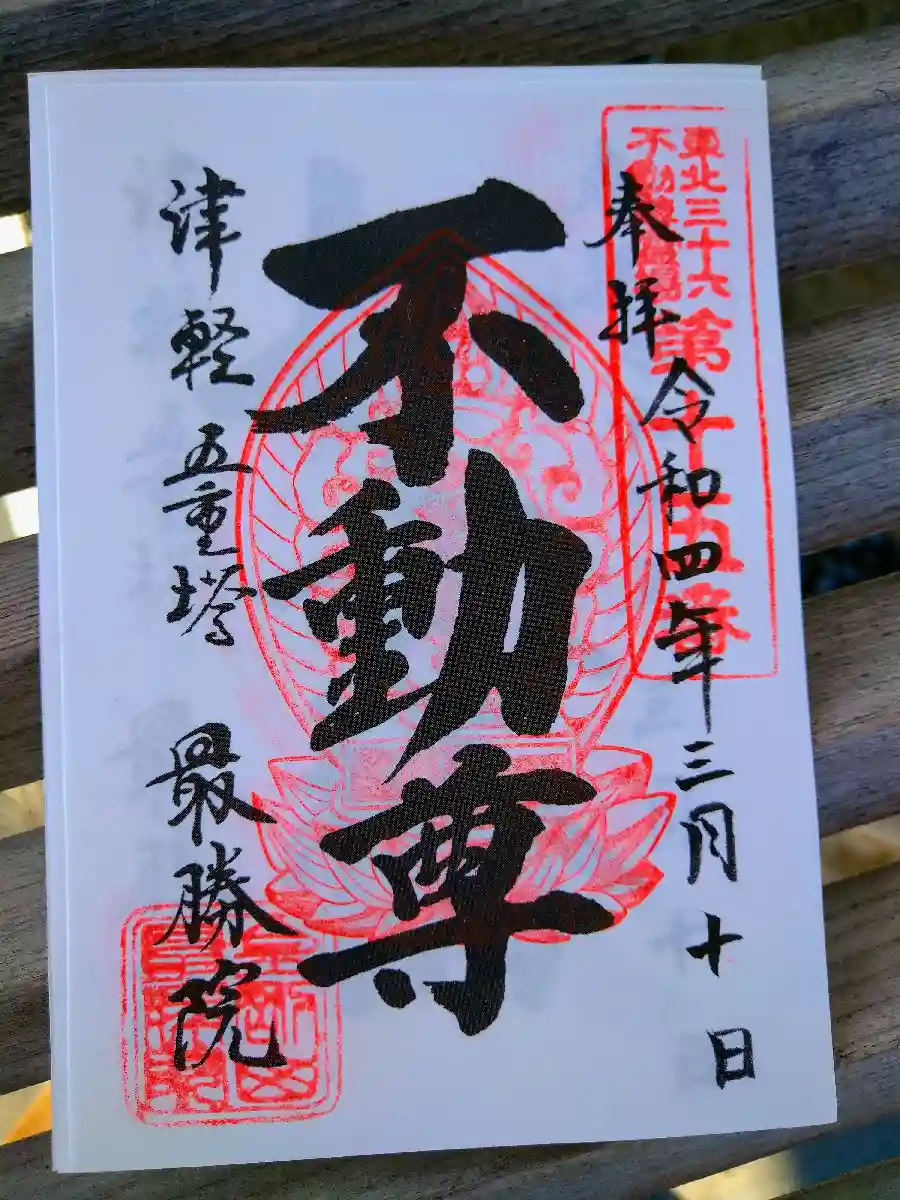 東北三十六
不動尊霊場
第十五番
奉拝 令和四年三月十日
不動尊
津軽 五重塔 最勝院